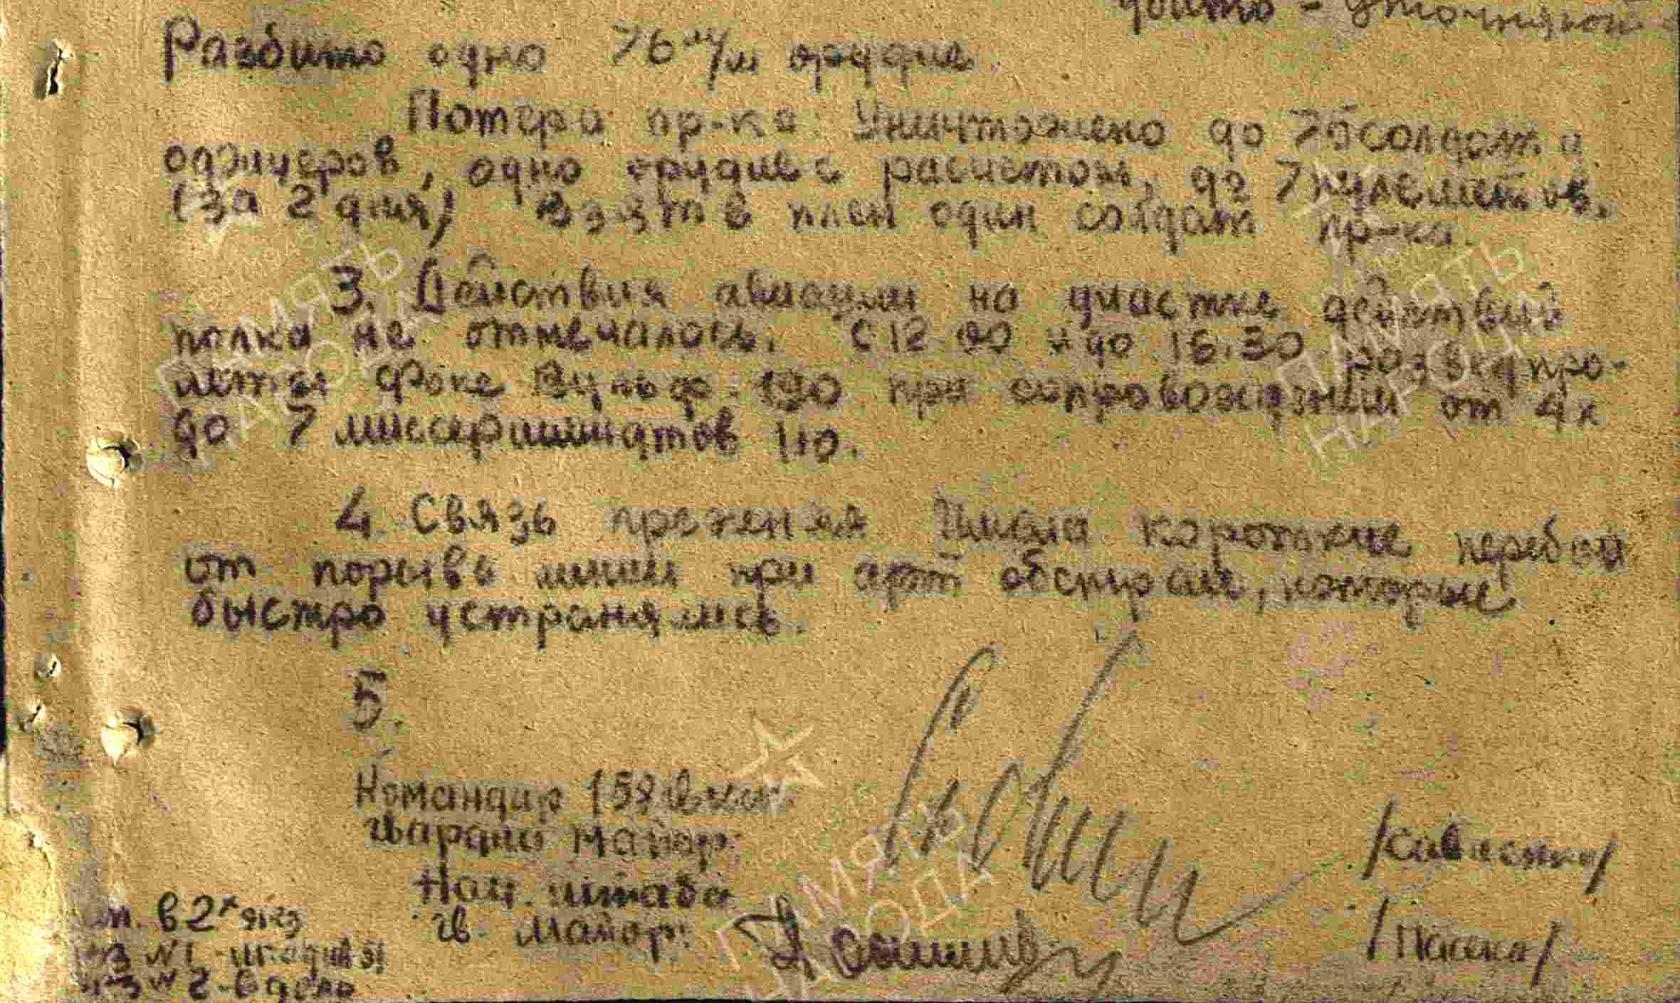 убито - уточняют
Разбито одно 76 м/м орудие.
Потери пр-ка: Уничтожено до 75 солдат и
офицеров, одно орудие с расчетом, до 7 пулеметов,
(за 2 дня) Взят в плен один солдат пр-ка.
3. Действия авиации на участке действий
полка не отмечалось. С 12.00 и до 16.30 развед про-
леты Фоке Вульф 190 при сопровождении от 4х
до 7 миссершмитов 110.
4. Связь прежняя Имела короткие перебои
от порыва линии при арт обстреле, которые
быстро устранялись.
5.
Командир 158
гвардии майор:
/Савченко/
Нач. штаба
гв. майор:
/Пасека/
в 2х экз
экз №1 -
экз №2 - в дело
ПАМЯТЬ НАРОДА
ПАМЯТЬ НАРОДА
ПАМЯТЬ НАРОДА